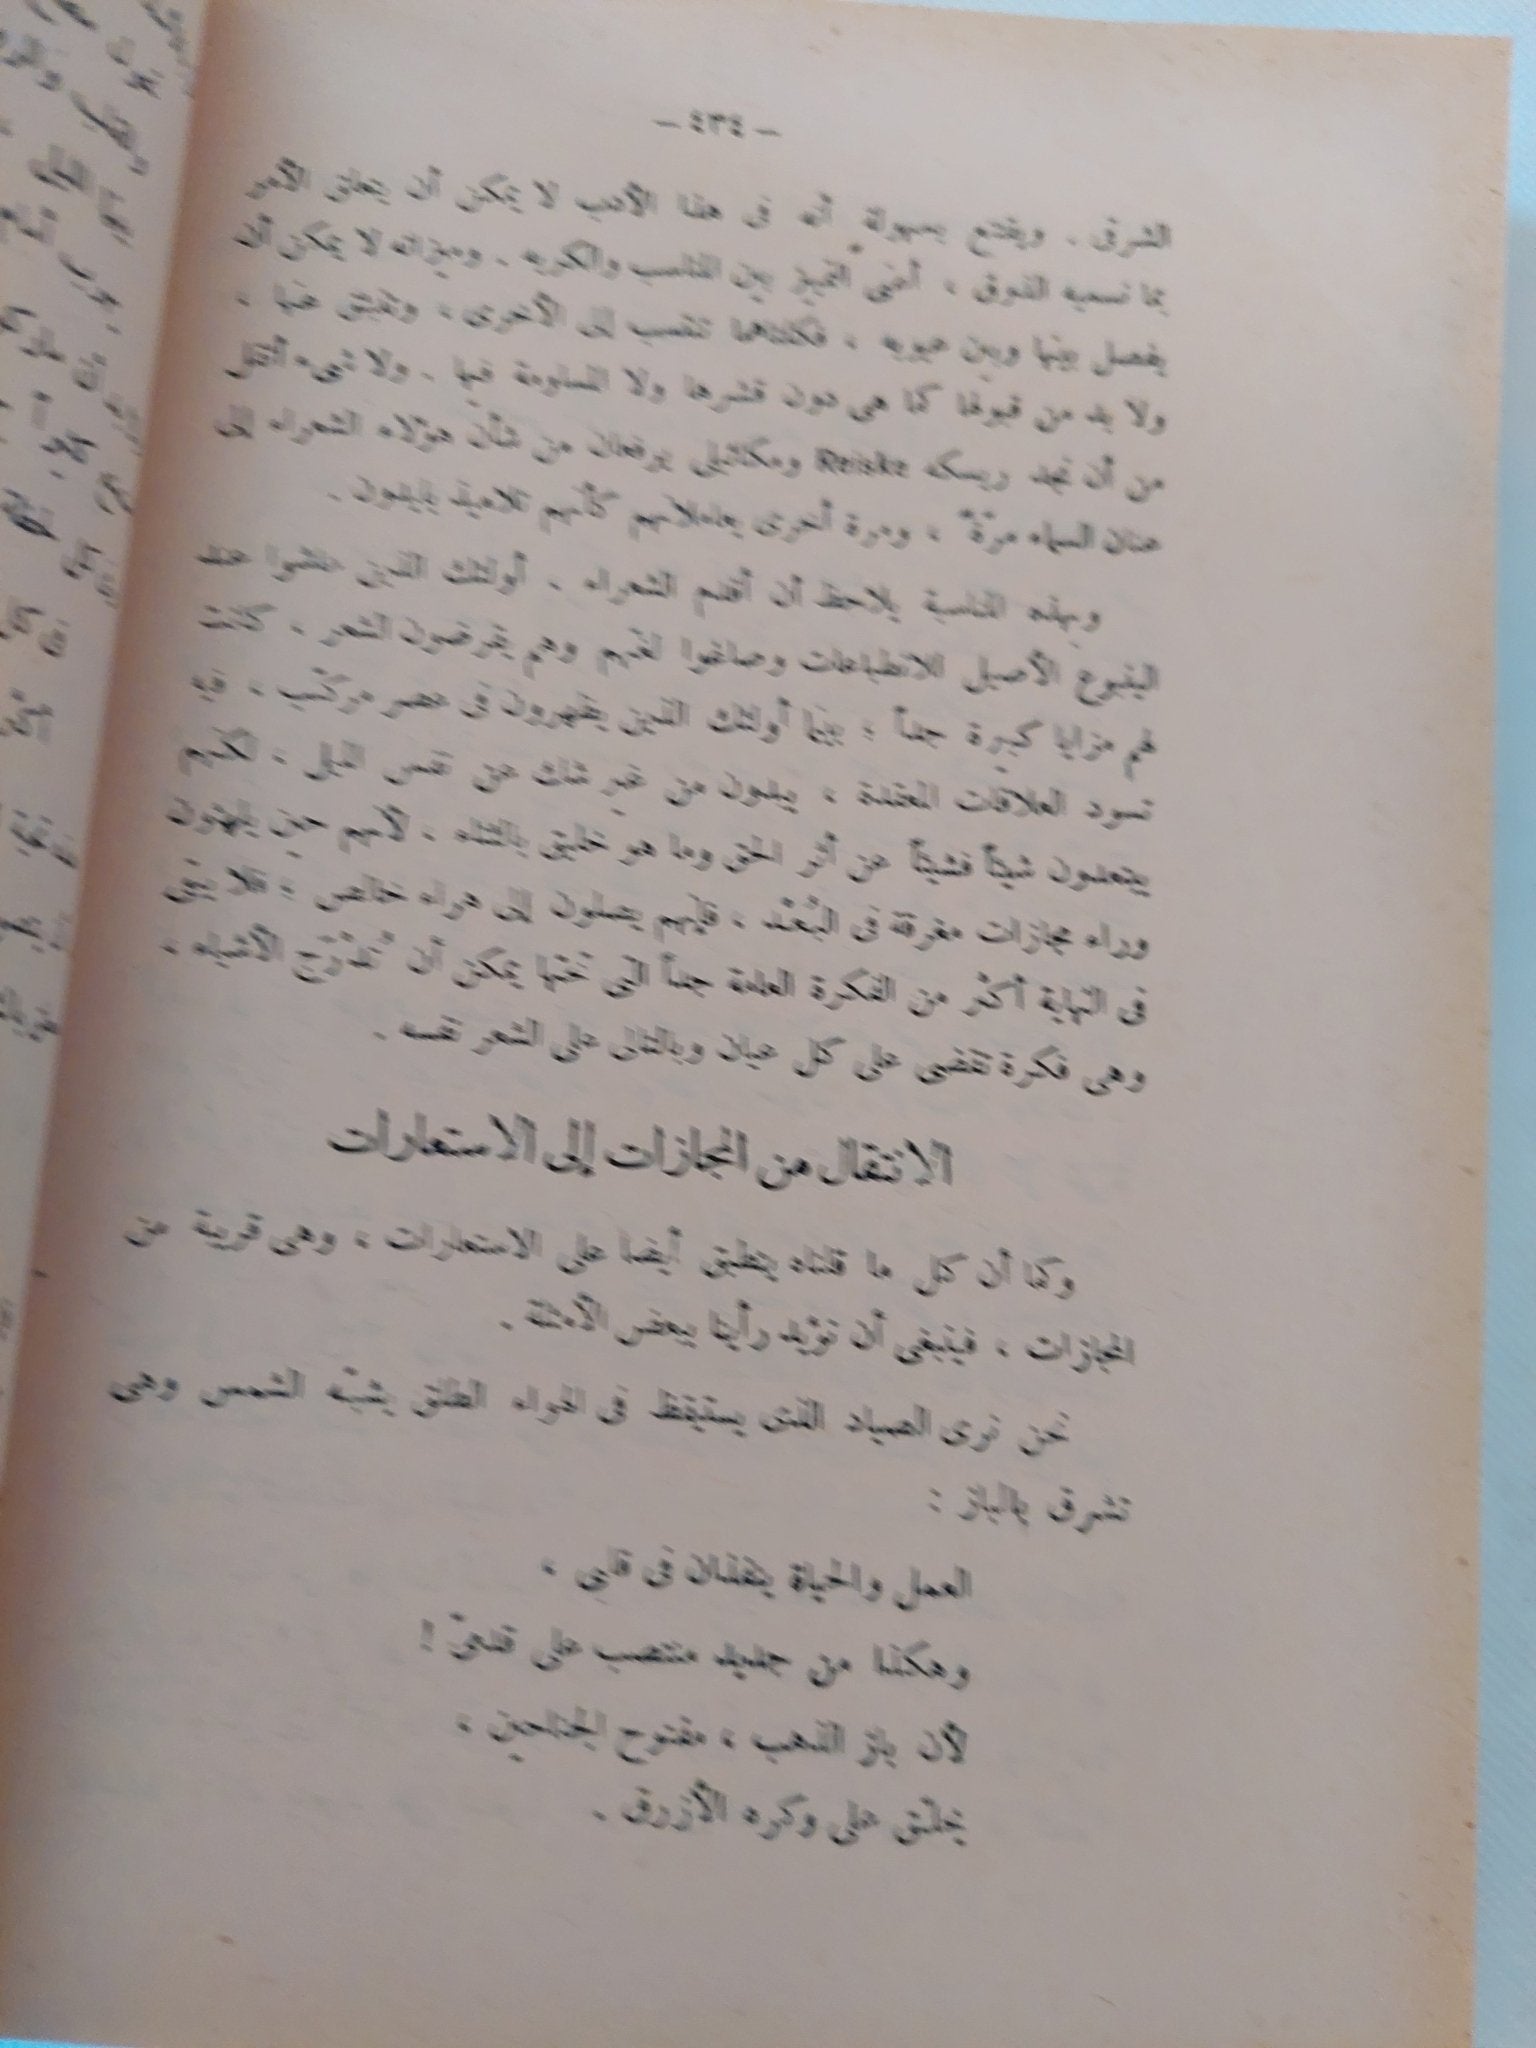 – ٤٣٤ –
الشرق . ويقتنع بسهولة أنه فى هذا الأدب لا يمكن أن يتعلق الأمر
بما نسميه الذوق ، أعنى التمييز بين المناسب والكريه . وميزاته لا يمكن أن
يفصل بينها وبين عيوبه ، فكلتاهما تنتسب إلى الأخرى ، وتنبثق عنها ،
ولا بد من قبولها كما هى دون قشرها ولا المساومة فيها . ولا شىء أثقل
من أن نجد ريسكه Reiske ومكائيلى يرفعان من شأن هؤلاء الشعراء إلى
عنان السماء مرّة ، ومرة أخرى يعاملانهم كأنهم تلاميذ بليدون .
وبهذه المناسبة يلاحظ أن أقدم الشعراء . أولئك الذين عاشوا عند
الينبوع الأصيل للانطباعات وصاغوا لغتهم وهم يقرضون الشعر ، كانت
لهم مزايا كبيرة جداً ؛ بينما أولئك الذين يظهرون فى عصر مركّب ، فيه
تسود العلاقات المعقدة ، يبدون من غير شك عن نفس الميل ، لكنهم
يبتعدون شيئاً فشيئاً عن أثر الحق وما هو خليق بالثناء . لأنهم حين يلهثون
وراء مجازات مغرقة فى البُعْد ، فإنهم يصلون إلى هراء خالص ؛ فلا يبقى
فى النهاية أكثر من الفكرة العامة جداً التى تحتها يمكن أن تُدْرَج الأشياء ،
وهى فكرة تقضى على كل عيان وبالتالى على الشعر نفسه .
الانتقال من المجازات إلى الاستعارات
وكما أن كل ما قلناه ينطبق أيضا على الاستعارات ، وهى قريبة من
المجازات ، فينبغى أن نؤيد رأينا ببعض الأمثلة .
نحن نرى الصياد الذى يستيقظ فى الهواء الطلق يشبّه الشمس وهى
تشرق بالباز :
العمل والحياة ينفذان فى قلبى ،
وهكذا من جديد منتصب على قدمىّ !
لأن باز الذهب ، مفتوح الجناحين ،
يحلّق على وكره الأزرق .